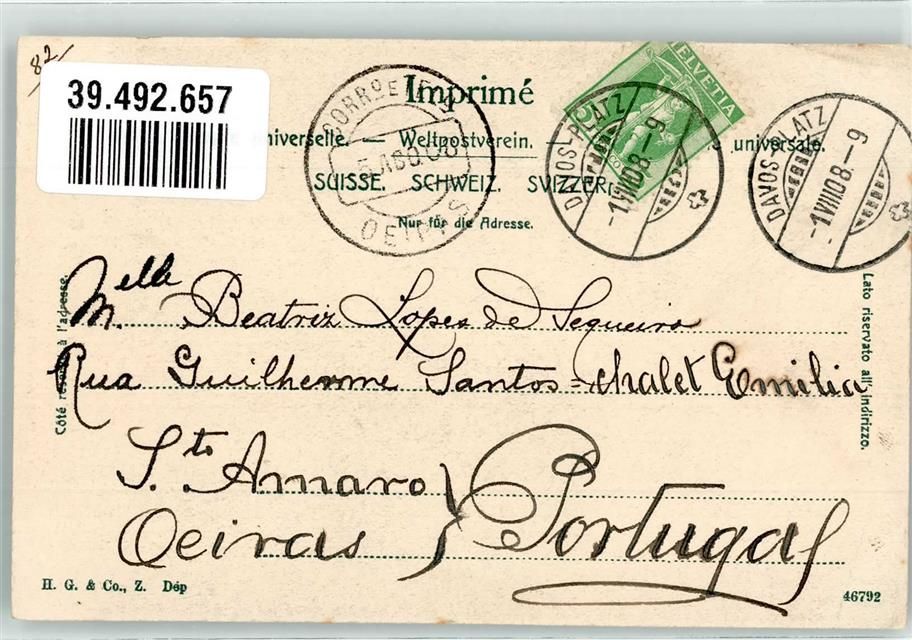 82
39.492.657
Imprimé
universelle. — Weltpostverein. universale.
SUISSE. SCHWEIZ. SVIZZERA
Nur für die Adresse.
CORRO E TEL
5 AGO 08
OEIRAS
HELVETIA
DAVOS-PLATZ
-1 VIII 08.-9
DAVOS-PLATZ
-1 VIII 08.-9
Côté à l'adresse.
Lato riservato all'indirizzo.
Melle. Beatriz Lopes de Sequeira
Rua Guilherme Santos = chalet Emilia
Sto Amaro
Oeiras } Portugal
H. G. & Co., Z. Dép
46792